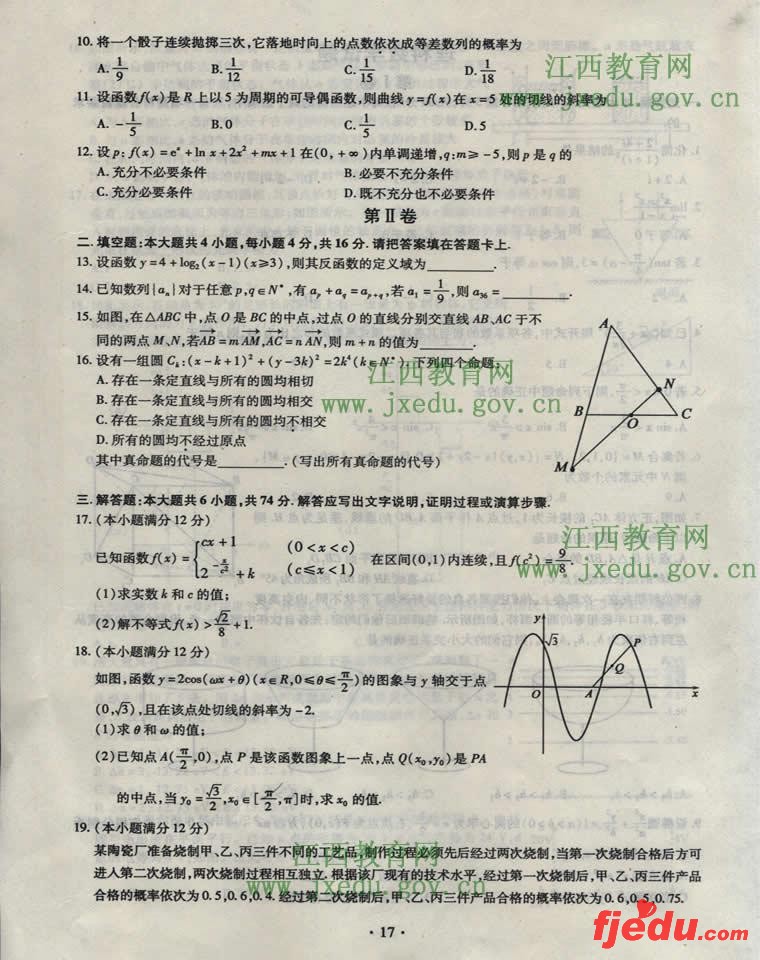 10. 将一个骰子连续抛掷三次,它落地时向上的点数依次成等差数列的概率为
A. 1/9 B. 1/12 C. 1/15 D. 1/18
11. 设函数f(x)是R上以5为周期的可导偶函数,则曲线y=f(x)在x=5处的切线的斜率为
A. -1/5 B. 0 C. 1/5 D. 5
12. 设p:f(x)=e^x+ln x+2x²+mx+1在(0,+∞)内单调递增,q:m≥-5,则p是q的
A. 充分不必要条件 B. 必要不充分条件
C. 充分必要条件 D. 既不充分也不必要条件
第Ⅱ卷
二. 填空题:本大题共4小题,每小题4分,共16分. 请把答案填在答题卡上.
13. 设函数y=4+log₂(x-1)(x≥3),则其反函数的定义域为________.
14. 已知数列{aₙ}对于任意p,q∈N*,有a_p+a_q=a_{p+q},若a₁=1/9,则a₃₆=________.
15. 如图,在△ABC中,点O是BC的中点,过点O的直线分别交直线AB、AC于不
同的两点M、N,若AB=mAM,AC=nAN,则m+n的值为________.
16. 设有一组圆C_k:(x-k+1)²+(y-3k)²=2k⁴(k∈N*).下列四个命题:
A. 存在一条定直线与所有的圆均相切
B. 存在一条定直线与所有的圆均相交
C. 存在一条定直线与所有的圆均不相交
D. 所有的圆均不经过原点
其中真命题的代号是________.(写出所有真命题的代号)
A
N
B
O
C
M
三. 解答题:本大题共6小题,共74分. 解答应写出文字说明,证明过程或演算步骤.
17. (本小题满分12分)
已知函数f(x)={cx+1 (0<x<c)
2^(-x/c²)+k (c≤x<1) 在区间(0,1)内连续,且f(c²)=9/8.
(1)求实数k和c的值;
(2)解不等式f(x)>√2/8+1.
18. (本小题满分12分)
如图,函数y=2cos(ωx+θ)(x∈R,0≤θ≤π/2)的图象与y轴交于点
(0,√3),且在该点处切线的斜率为-2.
(1)求θ和ω的值;
(2)已知点A(π/2,0),点P是该函数图象上一点,点Q(x₀,y₀)是PA
的中点,当y₀=√3/2,x₀∈[π/2,π]时,求x₀的值.
y
√3
P
Q
O
A
x
19. (本小题满分12分)
某陶瓷厂准备烧制甲、乙、丙三件不同的工艺品,制作过程必须先后经过两次烧制,当第一次烧制合格后方可
进入第二次烧制,两次烧制过程相互独立. 根据该厂现有的技术水平,经过第一次烧制后,甲、乙、丙三件产品
合格的概率依次为0.5,0.6,0.4. 经过第二次烧制后,甲、乙、丙三件产品合格的概率依次为0.6,0.5,0.75.
· 17 ·
江西教育网
jxedu.gov.cn
江西教育网
www.jxedu.gov.cn
江西教育网
www.jxedu.gov.cn
江西教育网
www.jxedu.gov.cn
fjedu.com